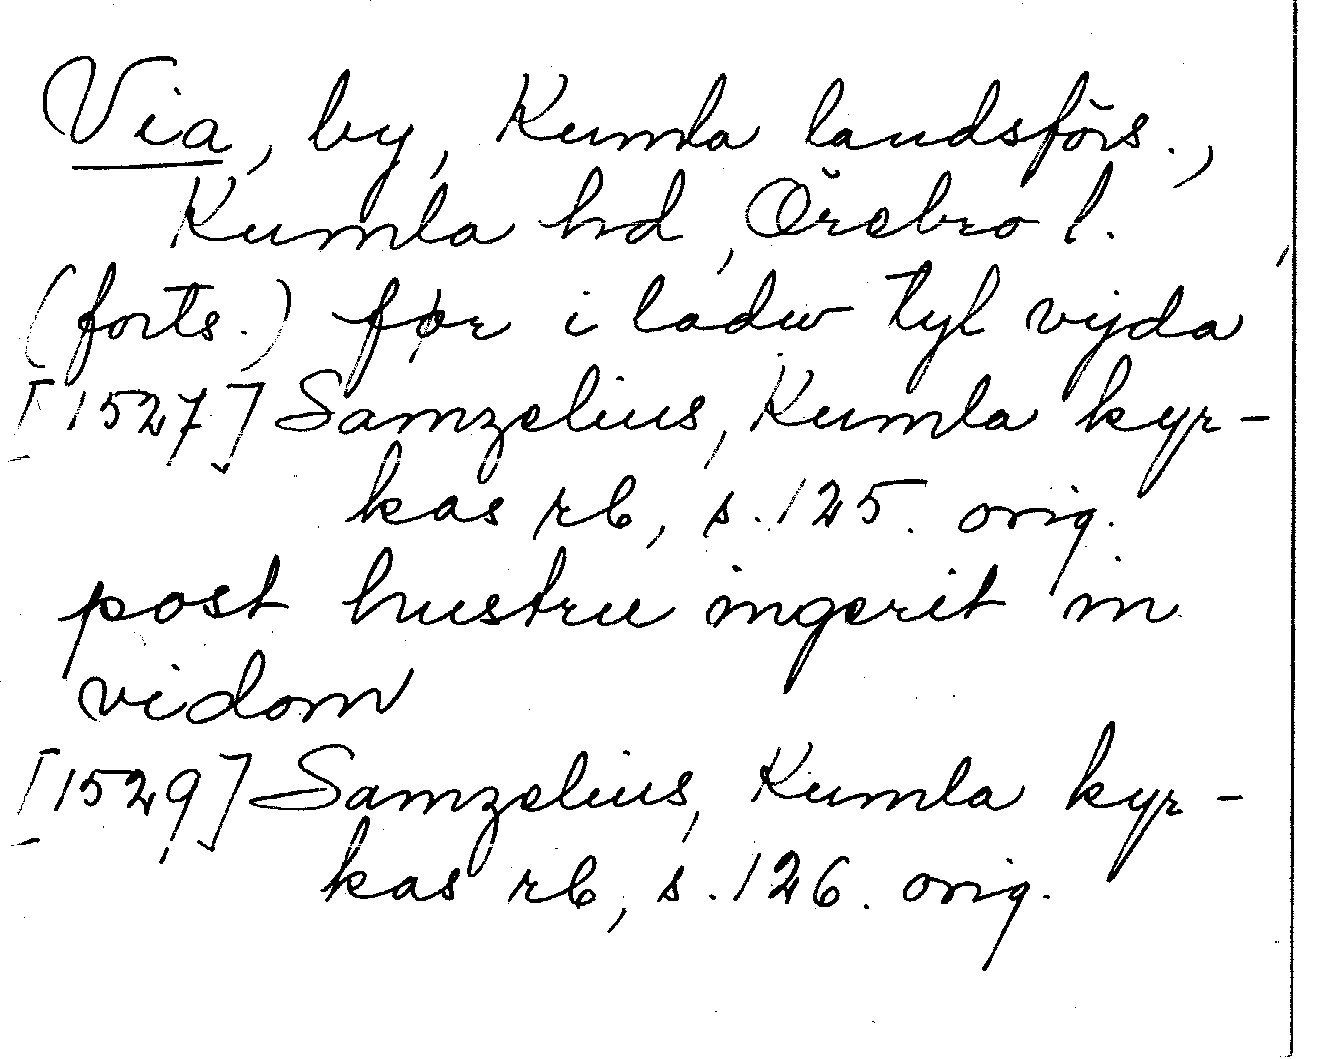 Via, by, Kumla landsförs.,
Kumla hd, Örebro l.
(forts.) før i ladw tyl vijda
[1527] Samzelius, Kumla kyr-
kas rb, s. 125. orig.
post hustru ingerit in
vidom
[1529] Samzelius, Kumla kyr-
kas rb, s. 126. orig.